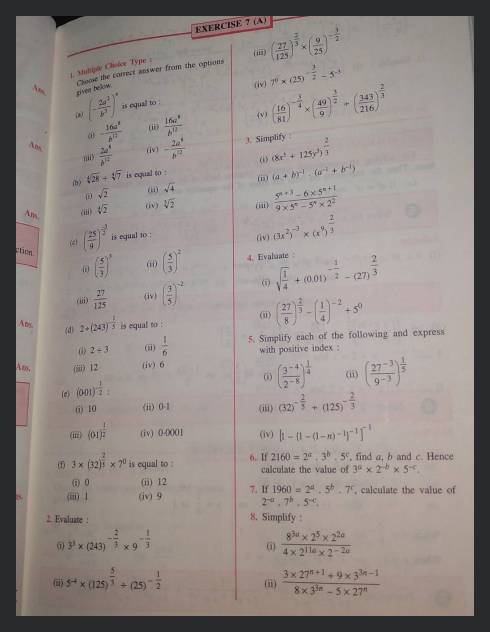 EXERCISE 7 (A)
1. Multiple Choice Type :
Choose the correct answer from the options
given below.
(a) (-2a²/b³)⁴ is equal to :
(i) -16a⁸/b¹² (ii) 16a⁸/b¹²
(iii) 2a⁸/b¹² (iv) -2a⁸/b¹²
(b) ∜28 ÷ ∜7 is equal to :
(i) √2 (ii) √4
(iii) ∜2 (iv) ∛2
(c) (25/9)^(-3/2) is equal to :
(i) (5/3)³ (ii) (5/3)²
(iii) 27/125 (iv) (3/5)⁻²
(d) 2÷(243)^(1/5) is equal to :
(i) 2 ÷ 3 (ii) 1/6
(iii) 12 (iv) 6
(e) (0·01)^(1/2) :
(i) 10 (ii) 0·1
(iii) (01)^(1/2) (iv) 0·0001
(f) 3 × (32)^(2/5) × 7⁰ is equal to :
(i) 0 (ii) 12
(iii) 1 (iv) 9
2. Evaluate :
(i) 3³ × (243)^(-2/3) × 9^(-1/3)
(ii) 5⁻⁴ × (125)^(5/3) ÷ (25)^(-1/2)
(iii) (27/125)^(2/3) × (9/25)^(-3/2)
(iv) 7⁰ × (25)^(-3/2) - 5⁻³
(v) (16/81)^(-3/4) × (49/9)^(3/2) ÷ (343/216)^(2/3)
3. Simplify :
(i) (8x³ ÷ 125y³)^(2/3)
(ii) (a + b)⁻¹ . (a⁻¹ + b⁻¹)
(iii) (5ⁿ⁺³ - 6 × 5ⁿ⁺¹)/(9 × 5ⁿ - 5ⁿ × 2²)
(iv) (3x²)⁻³ × (x⁹)^(2/3)
4. Evaluate :
(i) √(1/4) + (0.01)^(-1/2) - (27)^(2/3)
(ii) (27/8)^(2/3) - (1/4)⁻² + 5⁰
5. Simplify each of the following and express
with positive index :
(i) (3⁻⁴/2⁻⁸)^(1/4) (ii) (27⁻³/9⁻³)^(1/5)
(iii) (32)^(-2/5) ÷ (125)^(-2/3)
(iv) [1 - {1 - (1 - n)⁻¹}⁻¹]⁻¹
6. If 2160 = 2ᵃ . 3ᵇ . 5ᶜ, find a, b and c. Hence
calculate the value of 3ᵃ × 2⁻ᵇ × 5⁻ᶜ.
7. If 1960 = 2ᵃ . 5ᵇ . 7ᶜ, calculate the value of
2⁻ᵃ . 7ᵇ . 5⁻ᶜ.
8. Simplify :
(i) (8³ᵃ × 2⁵ × 2²ᵃ)/(4 × 2¹¹ᵃ × 2⁻²ᵃ)
(ii) (3 × 27ⁿ⁺¹ + 9 × 3³ⁿ⁻¹)/(8 × 3³ⁿ - 5 × 27ⁿ)
Ans.
Ans.
Ans.
ction
Ans.
Ans.